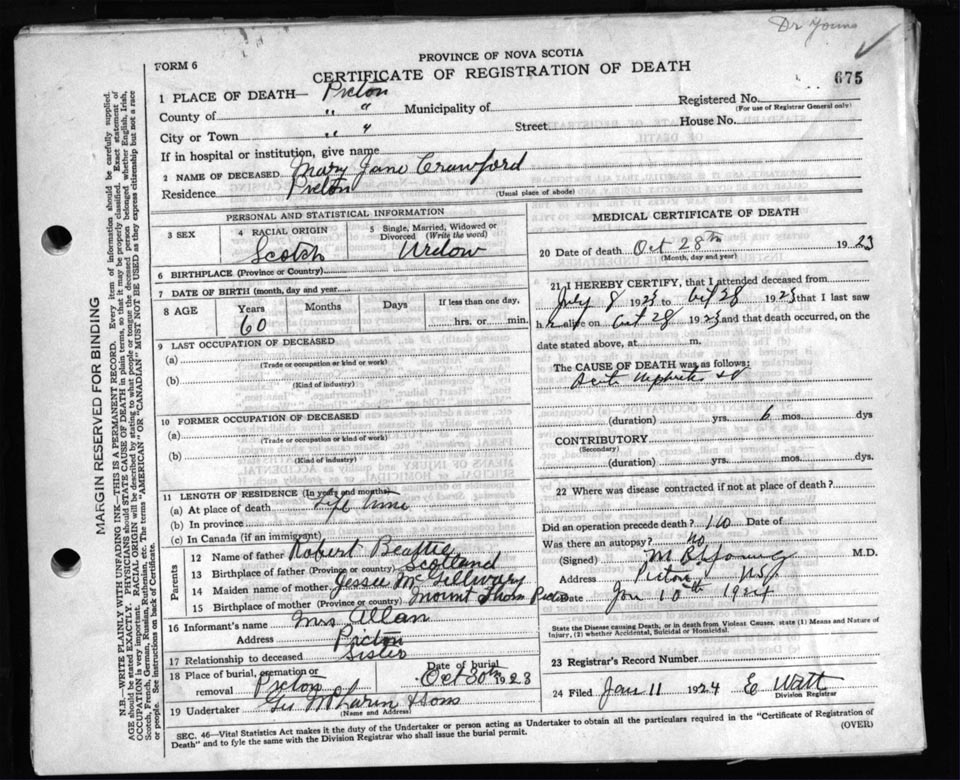 Dr Young
PROVINCE OF NOVA SCOTIA
FORM 6
CERTIFICATE OF REGISTRATION OF DEATH
675
1 PLACE OF DEATH— Pictou
County of " " Municipality of Registered No.
(For use of Registrar General only)
City or Town " " Street House No.
If in hospital or institution, give name
2 NAME OF DECEASED Mary Jane Crawford
Residence Pictou (Usual place of abode)
PERSONAL AND STATISTICAL INFORMATION
3 SEX
4 RACIAL ORIGIN
Scotch
5 Single, Married, Widowed or Divorced (Write the word)
Widow
6 BIRTHPLACE (Province or Country)
7 DATE OF BIRTH (month, day and year)
8 AGE Years Months Days If less than one day,
60 hrs. or min.
9 LAST OCCUPATION OF DECEASED
(a)
(Trade or occupation or kind or work)
(b)
(Kind of industry)
10 FORMER OCCUPATION OF DECEASED
(a)
(Trade or occupation or kind of work)
(b)
(Kind of industry)
11 LENGTH OF RESIDENCE (In years and months)
(a) At place of death Life time
(b) In province
(c) In Canada (if an immigrant)
Parents
12 Name of father Robert Beattie
13 Birthplace of father (Province or country) Scotland
14 Maiden name of mother Jessie McGillivary
15 Birthplace of mother (Province or country) Mount Thom Pictou
16 Informant's name Mrs Allan
Address Pictou
17 Relationship to deceased Sister
18 Place of burial, cremation or removal Pictou
Date of burial
Oct 30th 1923
19 Undertaker & Sons
(Name and Address)
MEDICAL CERTIFICATE OF DEATH
20 Date of death Oct 28th 1923
(Month, day and year)
21 I HEREBY CERTIFY, that I attended deceased from
July 8 1923 to Oct 28 1923 that I last saw
h alive on Oct 28 1923 and that death occurred, on the
date stated above, at m.
The CAUSE OF DEATH was as follows:
Acute Nephritis
(duration) yrs. 6 mos. dys
CONTRIBUTORY
(Secondary)
(duration) yrs. mos. dys.
22 Where was disease contracted if not at place of death?
Did an operation precede death? No Date of
Was there an autopsy? No
(Signed) M B Young M.D.
Address Pictou N.S.
Date Jan 10th 1924
State the Disease causing Death, or in death from Violent Causes, state (1) Means and Nature of
Injury, (2) whether Accidental, Suicidal or Homicidal.
23 Registrar's Record Number
24 Filed Jan 11 1924 E Watt
Division Registrar
SEC. 46—Vital Statistics Act makes it the duty of the Undertaker or person acting as Undertaker to obtain all the particulars required in the "Certificate of Registration of
Death" and to fyle the same with the Division Registrar who shall issue the burial permit. (OVER)
MARGIN RESERVED FOR BINDING
N.B.—WRITE PLAINLY WITH UNFADING INK—THIS IS A PERMANENT RECORD. Every item of information should be carefully supplied.
AGE should be stated EXACTLY. PHYSICIANS should STATE CAUSE OF DEATH in plain terms, so that it may be properly classified. Exact statement of
OCCUPATION is very important. RACIAL ORIGIN will be described by stating to what people or tongue the deceased person belonged whether English, Irish,
Scotch, French, German, Russian, Ruthenian, etc. The terms "AMERICAN" OR "CANADIAN" MUST NOT BE USED as they express citizenship but not a race
or people. See instructions on back of Certificate.